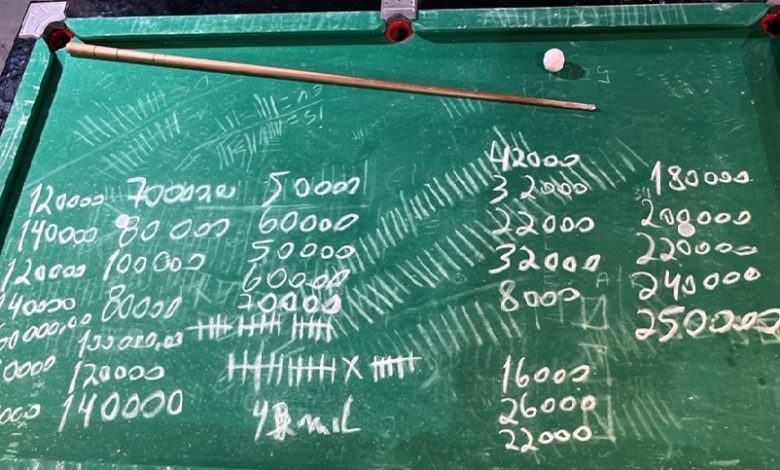 120000
140000
120000
140000
70000,00
80000
100000
80000
120000
140000
50000
60000
50000
60000
70000
X
mil
42000
32000
22000
32000
8000
16000
26000
22000
180000
200000
220000
240000
250000